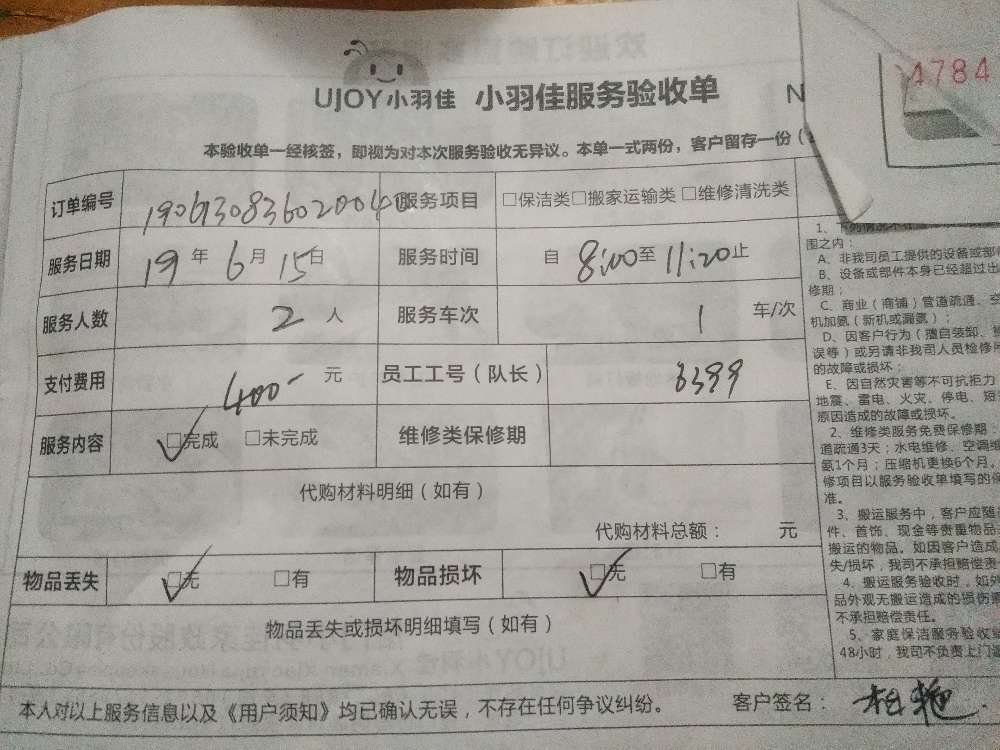 UJOY小羽佳 小羽佳服务验收单 N
4784
本验收单一经核签，即视为对本次服务验收无异议。本单一式两份，客户留存一份（
订单编号 190613083602004 服务项目 □保洁类□搬家运输类 □维修清洗类
服务日期 19 年 6 月 15 日 服务时间 自 8:00 至 11:20 止
服务人数 2 人 服务车次 1 车/次
支付费用 400- 元 员工工号（队长）
服务内容 ✓□完成 □未完成 维修类保修期
代购材料明细（如有）
代购材料总额： 元
物品丢失 ✓□无 □有 物品损坏 ✓□无 □有
物品丢失或损坏明细填写（如有）
本人对以上服务信息以及《用户须知》均已确认无误，不存在任何争议纠纷。 客户签名：
围之内：
A、非我司员工提供的设备或部
B、设备或部件本身已经超过出
修期；
C、商业（商铺）管道疏通、空
机加氨（新机或漏氨）；
D、因客户行为（擅自装卸、
误等）或另请非我司人员检修
的故障或损坏；
E、因自然灾害等不可抗拒力
地震、雷电、火灾、停电、短
原因造成的故障或损坏。
2、维修类服务免费保修期：
道疏通3天；水电维修、空调维
氨1个月；压缩机更换6个月。
修项目以服务验收单填写的
准。
3、搬运服务中，客户应随
件、首饰、现金等贵重物品
搬运的物品。如因客户造成
失/损坏，我司不承担赔偿责
4、搬运服务验收时，如外
品外观无搬运造成的损伤
不承担赔偿责任。
5、家庭保洁服务验收
48小时，我司不负责上门